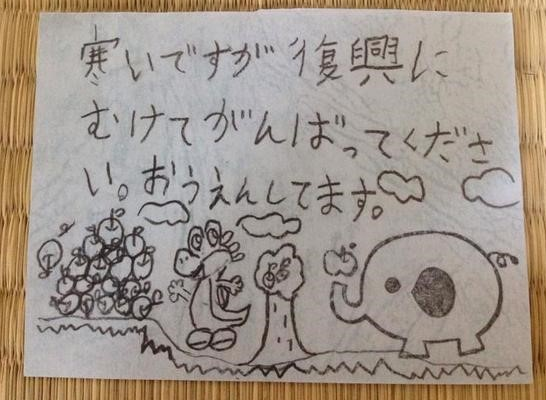 寒いですが復興に
むけてがんばってくださ
い。おうえんしてます。